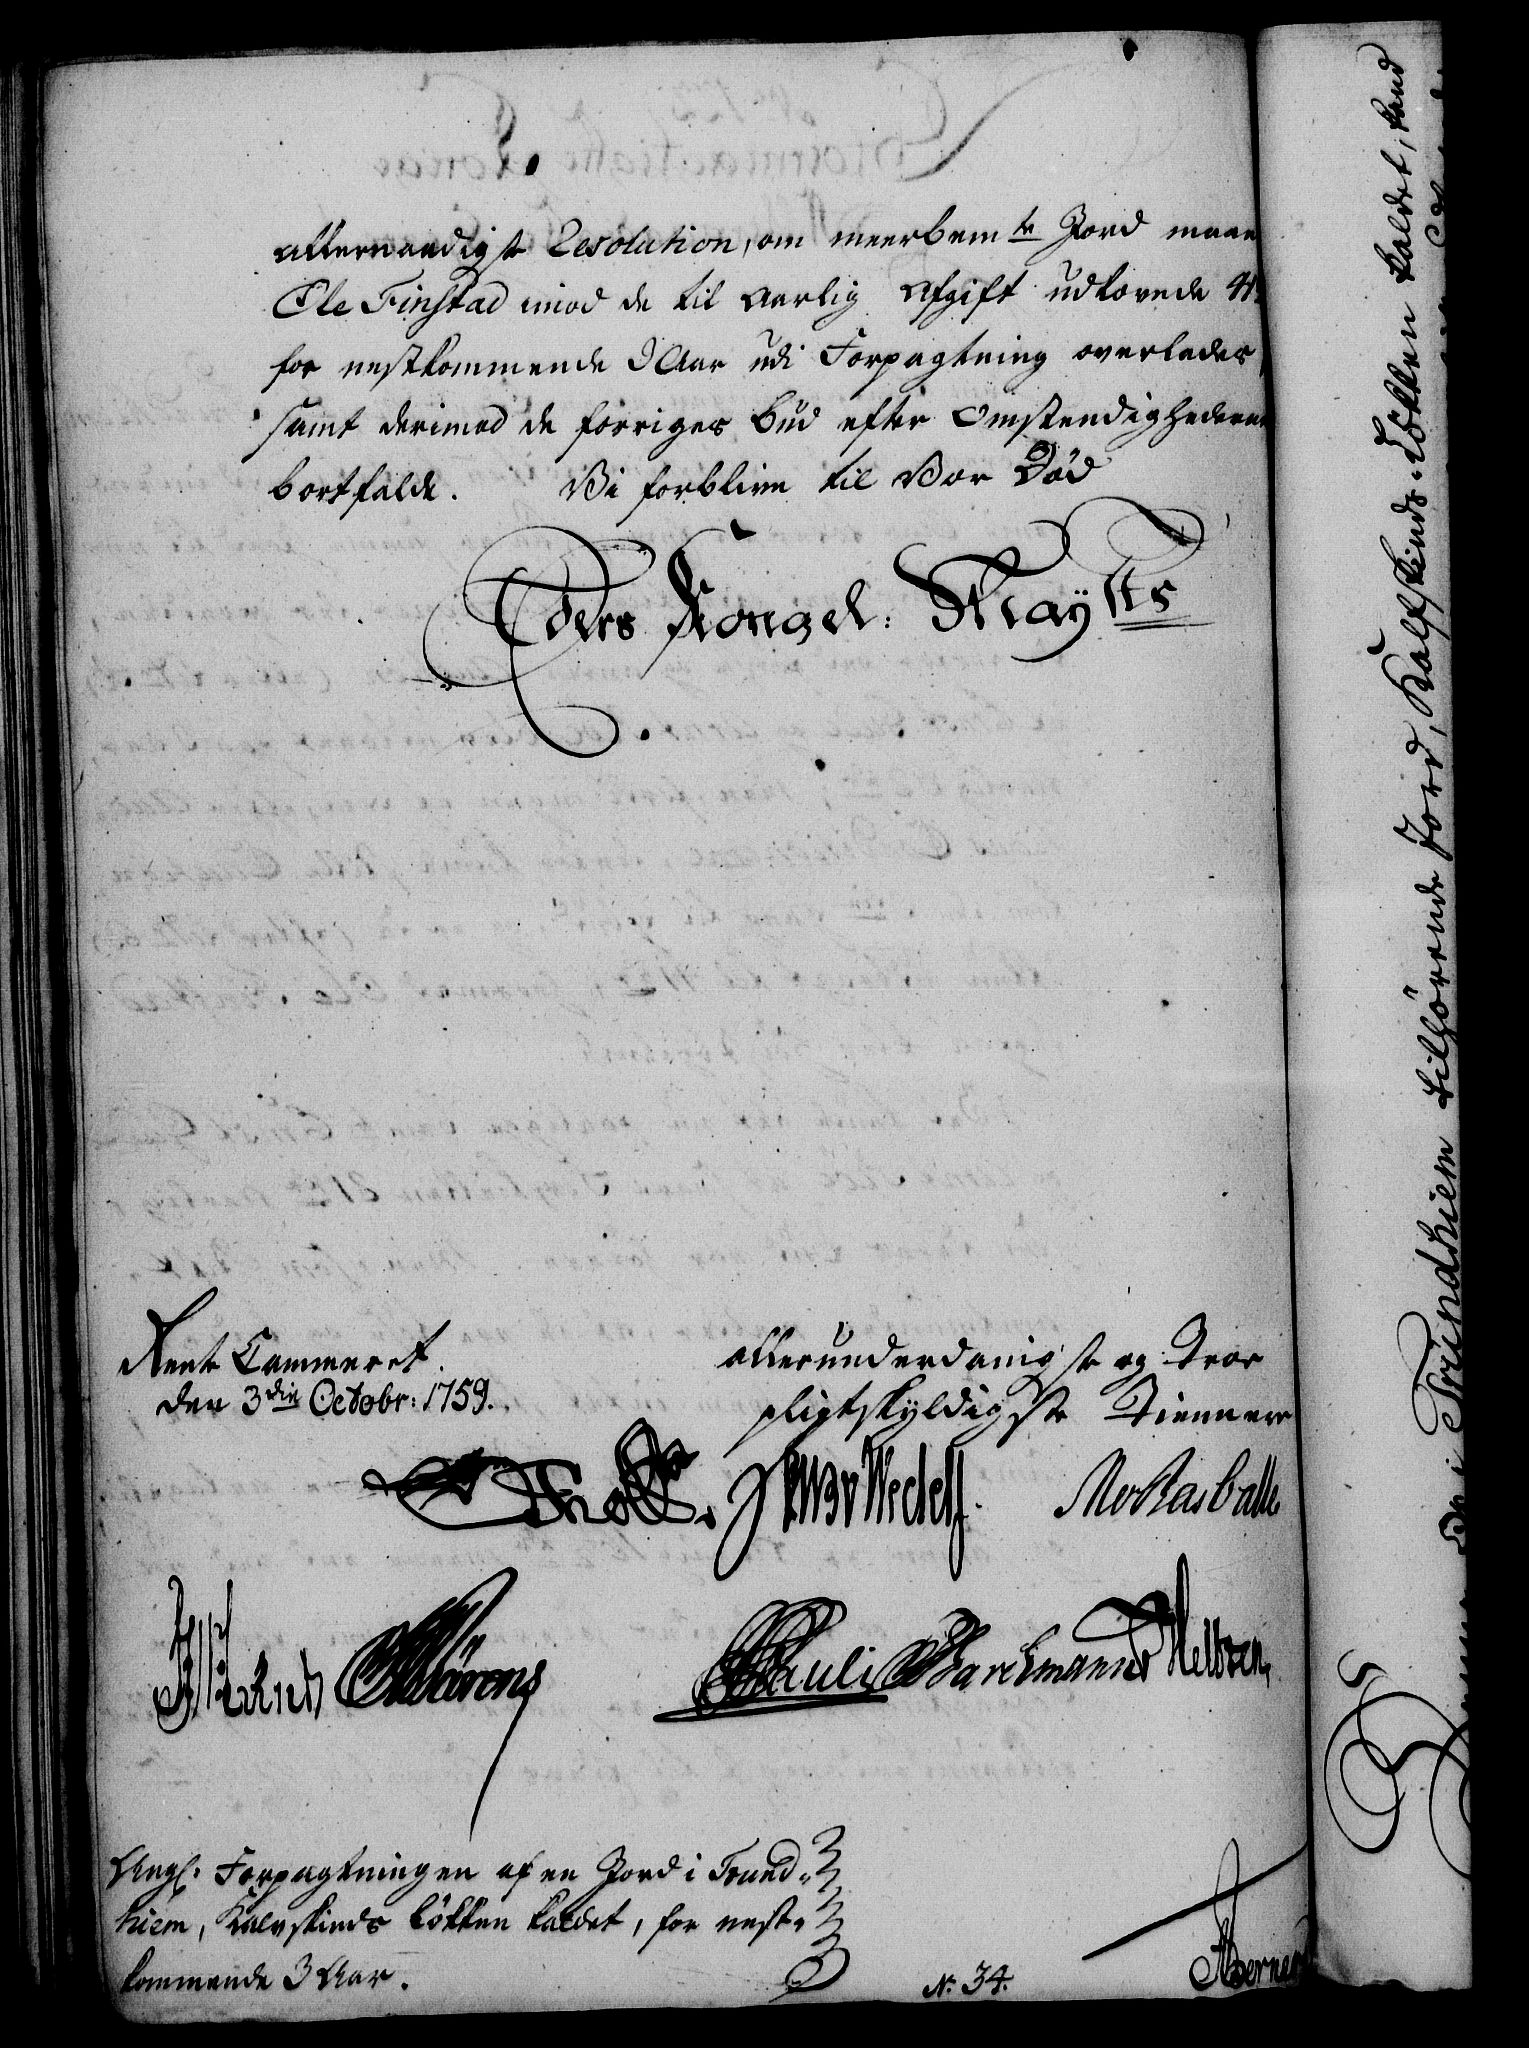 allernaadigst Resolution, om meerbemte Jord maae
Ole Finstad imod de til aarlig Afgift udlovede
for nestkommende 3 Aar udi Forpagtning overlades,
samt derimod de forriges bud efter Omstendighederne
bortfalde. Vi forblive til Vor Død
Eders Kongel: Maytts
Rente Cammeret.
den 3die Octobr: 1759.
allerunderdanigste og Troe
pligtskyldigste Tiennere
Holst. Wedell.
Pauli Barchmann
Ang: Forpagtningen af en Jord i Trund-
hiem, Kalvskinds Løkken kaldet, for nest-
kommende 3 Aar.
No. 34.
i Trundhiem tilhørende Jord, Kalfskinds-Løkken kaldet, kand